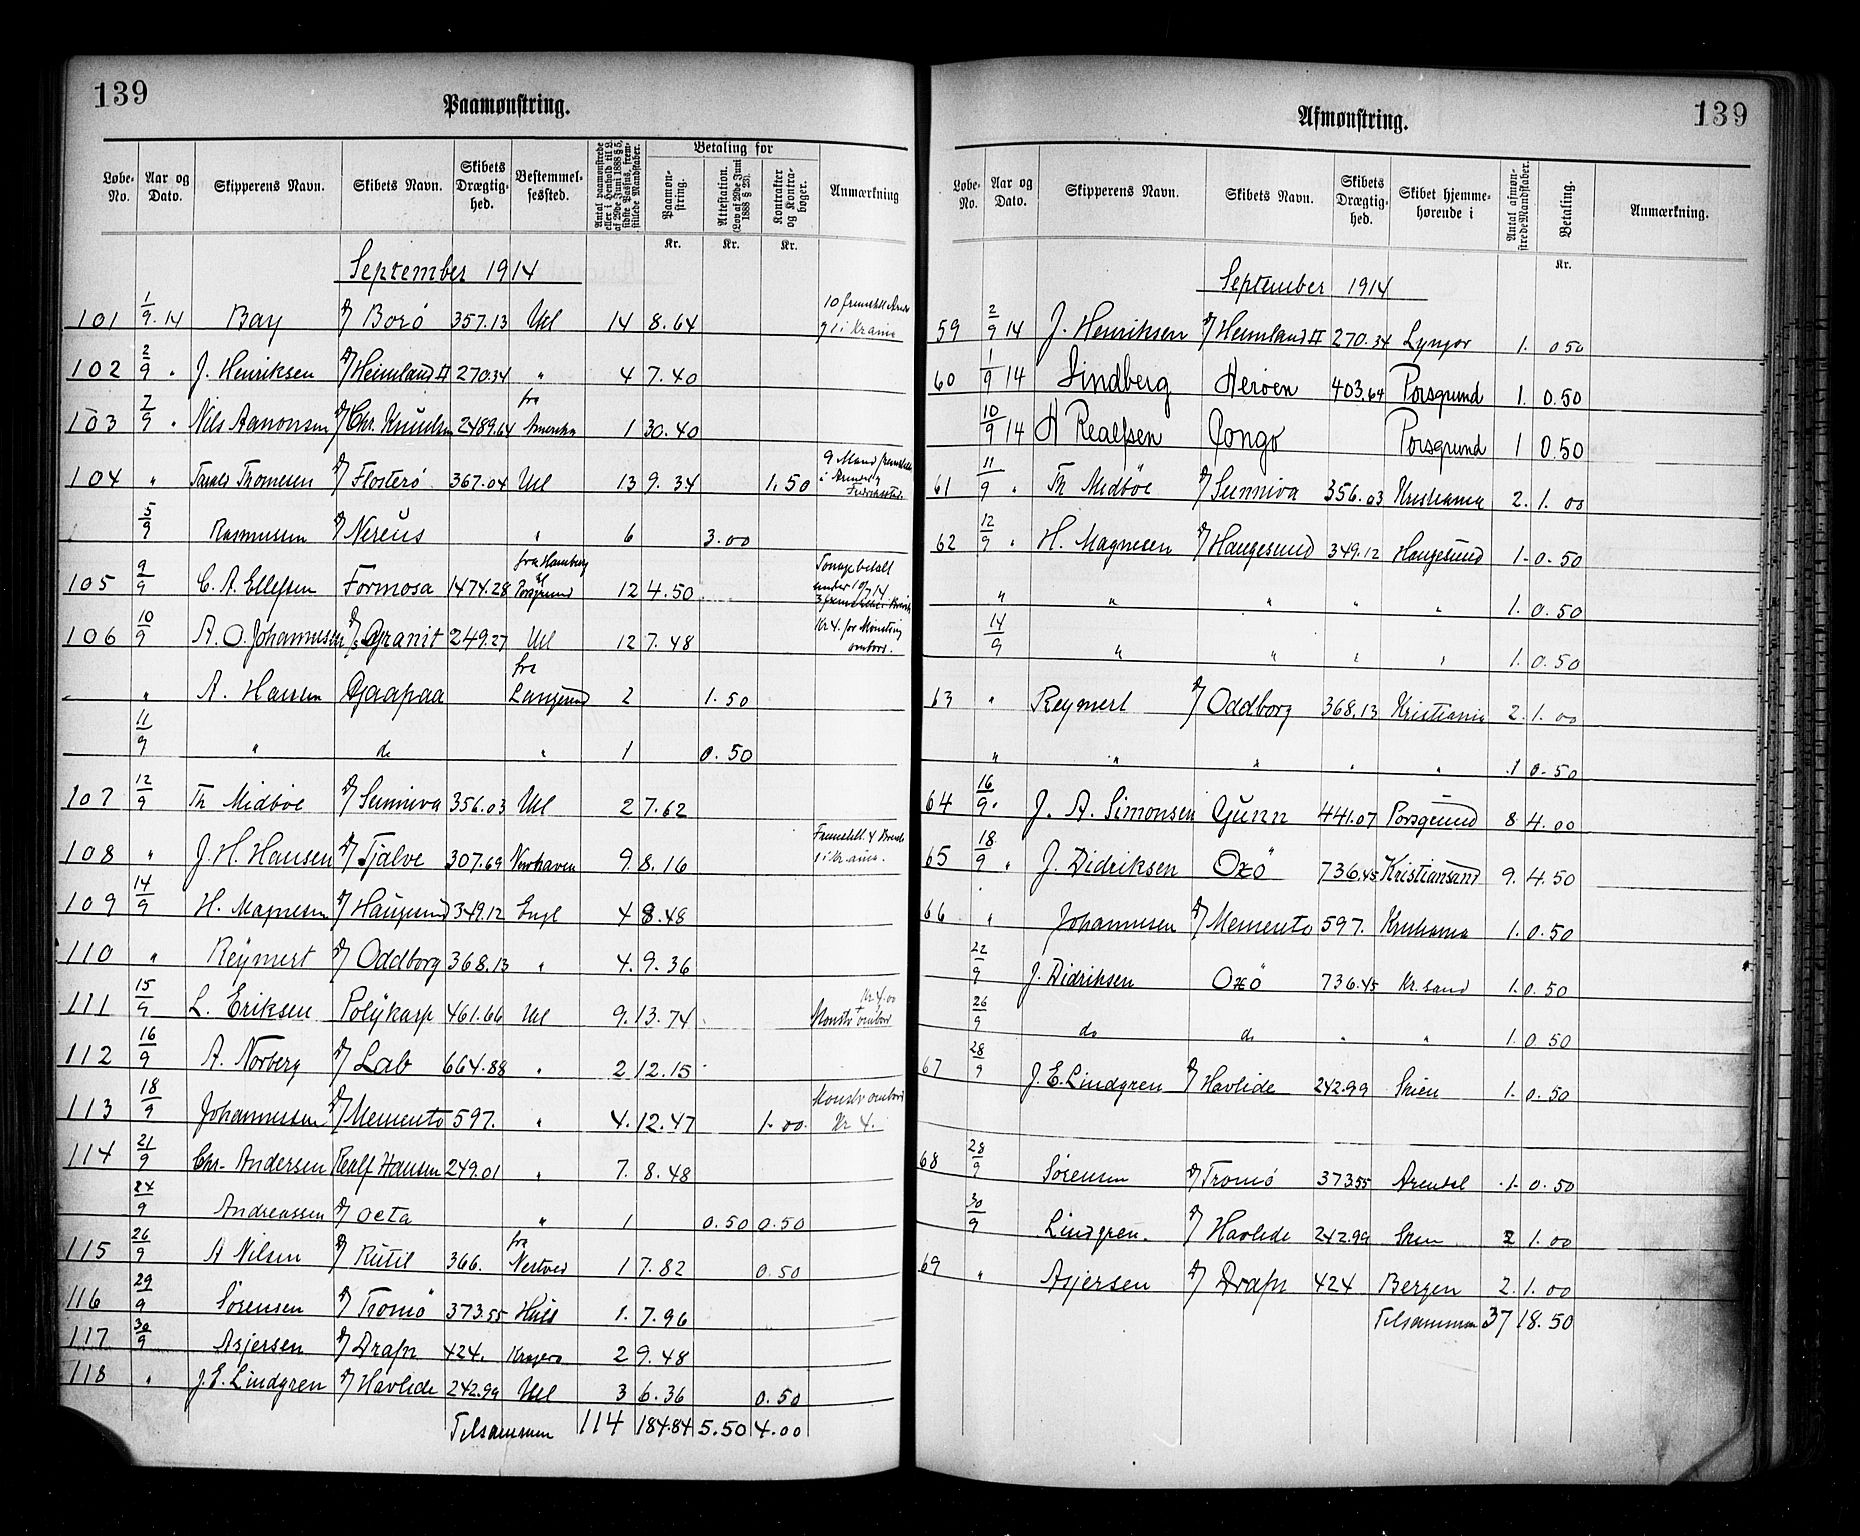 139
Paamønstring.
Løbe-No. Aar og Dato. Skipperens Navn. Skibets Navn. Skibets Drægtighed. Bestemmelsessted. Antal paamønstrede eller i Henhold til L. af 29de Juni 1888 § 5, sidste Passus, fremstillede Mandskaber. Betaling for Paamønstring. Attestation. (Lov af 29de Juni 1888 § 23). Kontrakter og Kontrabøger. Anmærkning
Kr. Kr. Kr.
September 1914
101 1/9.14 Bay Borø 357.13 Udl 14 8.64 10 fremstill
102 2/9 " J. Henriksen Heimland II 270.34 " 4 7.40
103 7/9 " Nils Aanonsen Chr. Knudsen 2489.64 fra Amerika 1 30.40
104 " Tarald Thomesen Flosterø 367.04 Udl 13 9.34 1.50 9 Mand
5/9 Rasmussen Nereus " 6 3.00
105 9/9 C. A. Ellefsen Formosa 1474.28 fra Hamburg til Porsgrund 12 4.50 Tonage betalt under 10/7 14
106 10/9 A. O. Johannesen Granit 249.27 Udl 12 7.48 Kr 4. for Mønstring ombord.
" A. Hansen Gjaapaa fra Langesund 2 1.50
11/9 " do " 1 0.50
107 12/9 Th Midbøe Sunniva 356.03 Udl 2 7.62
108 " J. H. Hansen Tjalve 307.69 Newhaven 9. 8.16 Fremstill. 4
109 14/9 H. Magnesen Haugesund 349.12 Engl 4 8.48
110 " Reymert Oddborg 368.13 " 4. 9.36
111 15/9 L. Eriksen Polykarp 461.66 Udl 9. 13.74 Kr 4.00 Mønstr ombord
112 16/9 A. Norberg Lab 664.88 " 2 12.15
113 18/9 Johannessen Memento 597. " 4. 12.47 1.00 Mønstr ombord Kr 4.
114 21/9 Chr. Andersen Realf Hansen 249.01 " 7. 8.48
24/9 Andreassen Octa " 1 0.50 0.50
115 26/9 A Nilsen Rutil 366. fra Nestved 1 7.82 0.50
116 29/9 Sørensen Tromö 373.55 Hull 1. 7.96
117 30/9 Asjersen Drafn 424. Kragerø 2 9.48
118 " J. E. Lindgren Havlide 242.99 Udl 3 6.36 0.50
Tilsammen 114 184.84 5.50 4.00
139
Afmønstring.
Løbe-No. Aar og Dato. Skipperens Navn. Skibets Navn. Skibets Drægtighed. Skibet hjemmehørende i Antal afmønstrede Mandskaber. Betaling. Anmærkning.
Kr.
September 1914
59 2/9 14 J. Henriksen Heimland II 270.34 Lyngør 1. 0 50
60 1/9 14 Lindberg Herøen 403.64 Porsgrund 1. 0.50
10/9 14 H Realfsen Congo Porsgrund 1 0.50
61 11/9 " Th Midbøe Sunniva 356.03 Kristiania 2. 1.00
62 12/9 " H. Magnesen Haugesund 349.12 Haugesund 1. 0.50
" " " " " 1. 0.50
14/9 " " " " 1. 0.50
63 " Reymert Oddborg 368.13 Kristiania 2. 1.00
" " " " " .1 0.50
64 16/9. J. A. Simonsen Gunn 441.07 Porsgrund 8 4.00
65 18/9 " J. Didriksen Oxö 736.45 Kristiansand 9. 4.50
66 " Johannesen Memento 597. Kristiania 1. 0.50
22/9 J. Didriksen Oxö 736.45 Kr.sand 1. 0.50
26/9 do do " " 1. 0.50
67 28/9 J. E. Lindgren Havlide 242.99 Skien 1. 0.50
68 28/9 Sørensen Tromö 373.55 Arendal 1. 0.50
30/9 Lindgren. Havlide 242.99 Skien 2 1.00
69 " Asjersen Drafn 424 Bergen 2. 1.00
Tilsammen 37 18.50